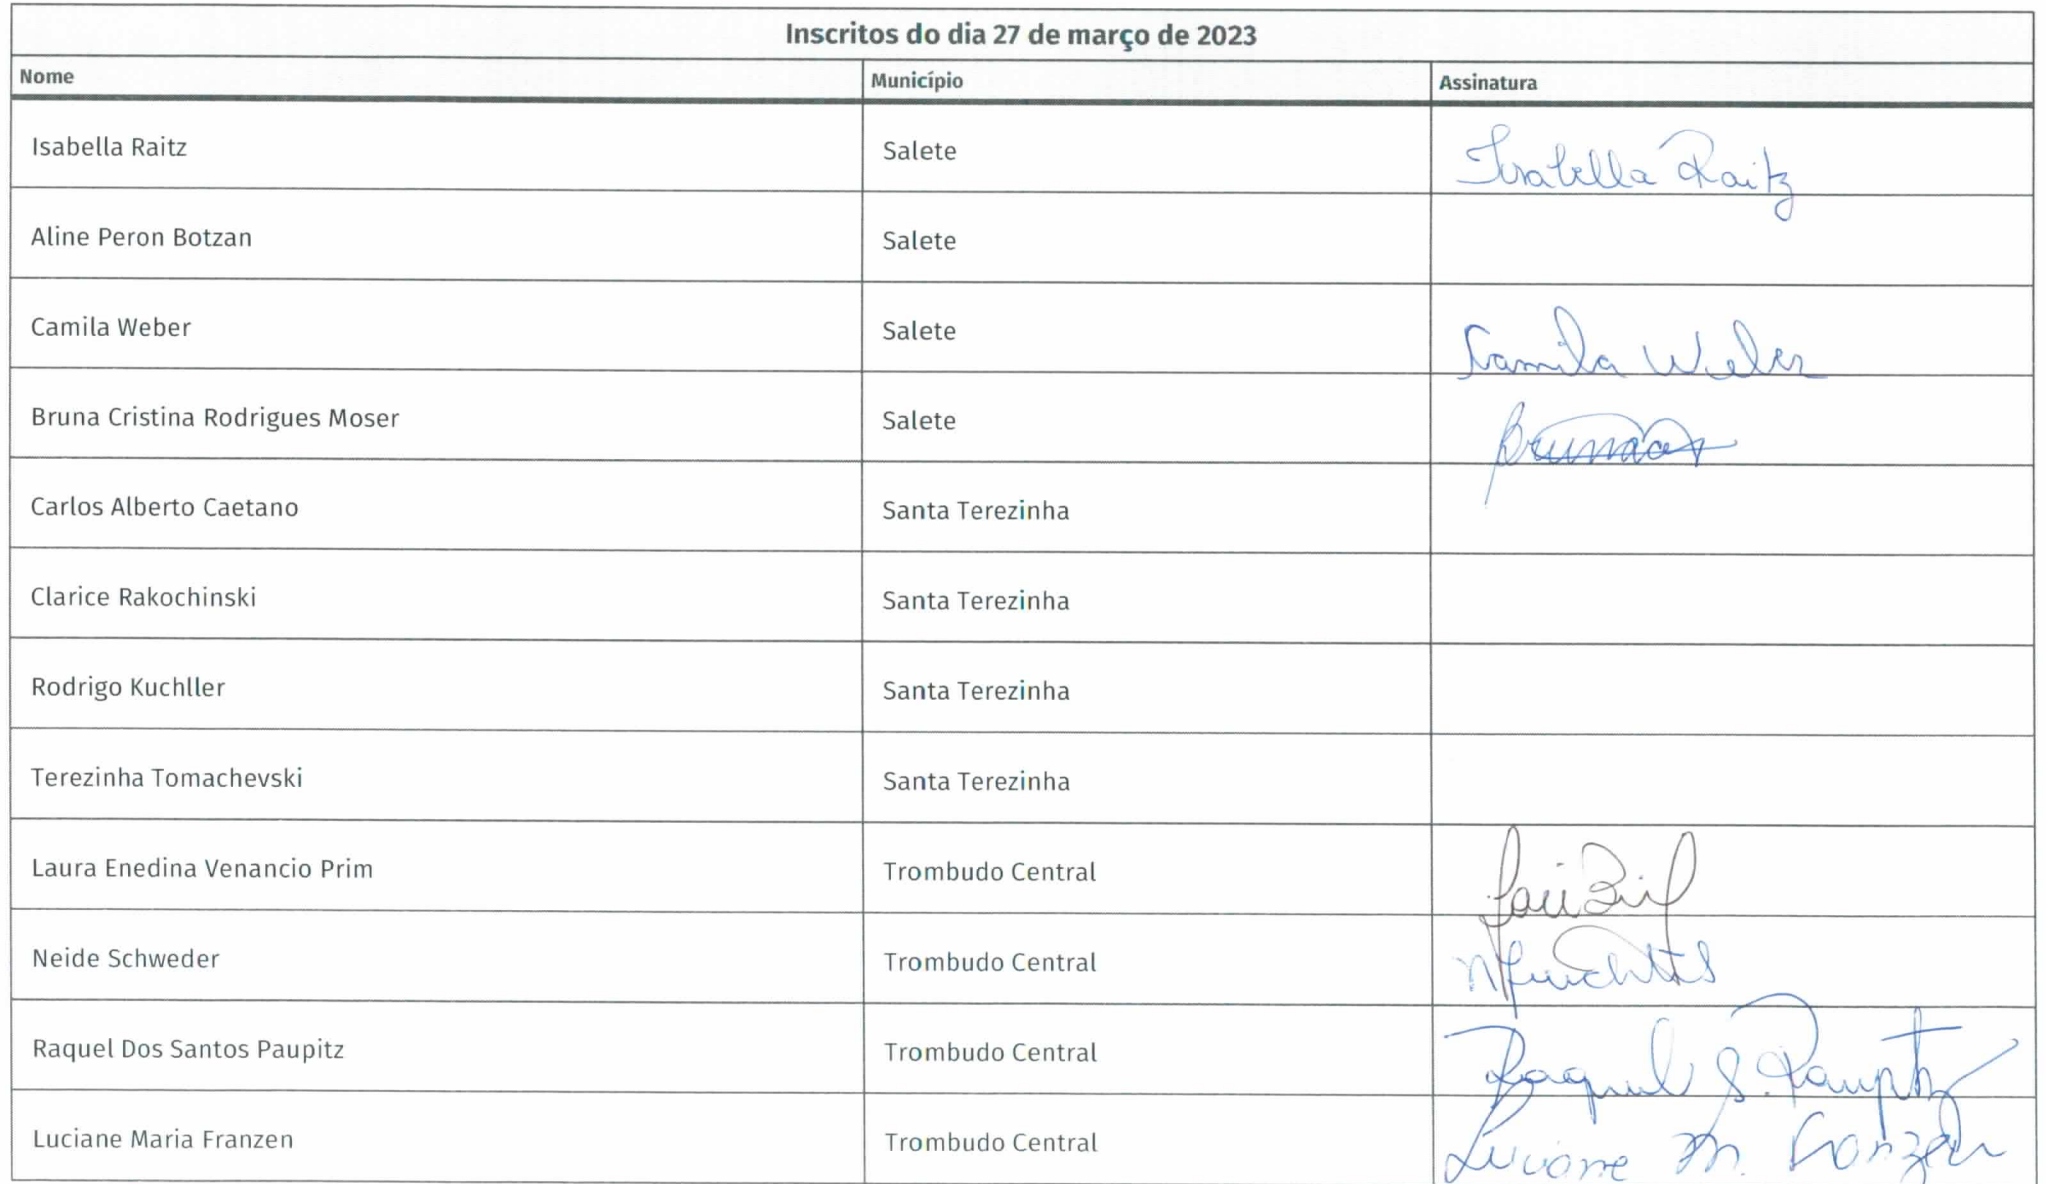 Inscritos do dia 27 de março de 2023
Nome Município Assinatura
Isabella Raitz Salete Isabella Raitz
Aline Peron Botzan Salete
Camila Weber Salete Camila Weber
Bruna Cristina Rodrigues Moser Salete
Carlos Alberto Caetano Santa Terezinha
Clarice Rakochinski Santa Terezinha
Rodrigo Kuchller Santa Terezinha
Terezinha Tomachevski Santa Terezinha
Laura Enedina Venancio Prim Trombudo Central
Neide Schweder Trombudo Central
Raquel Dos Santos Paupitz Trombudo Central Raquel S. Paupitz
Luciane Maria Franzen Trombudo Central Luciane M. Franzen